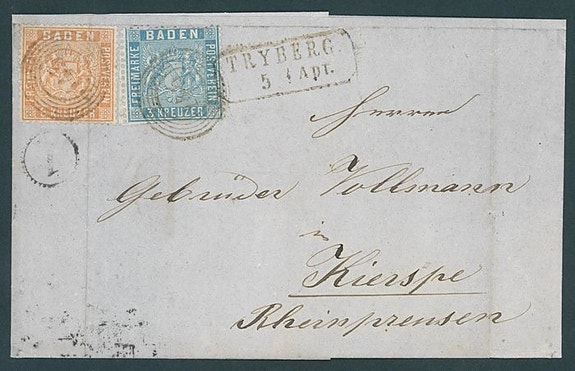 BADEN
POSTVEREIN
KREUZER
BADEN
FREIMARKE
POSTVEREIN
3 KREUZER
TRYBERG.
5 Apr.
Herren
Gebrüder Vollmann
in
Kierspe
Rheinpreusen